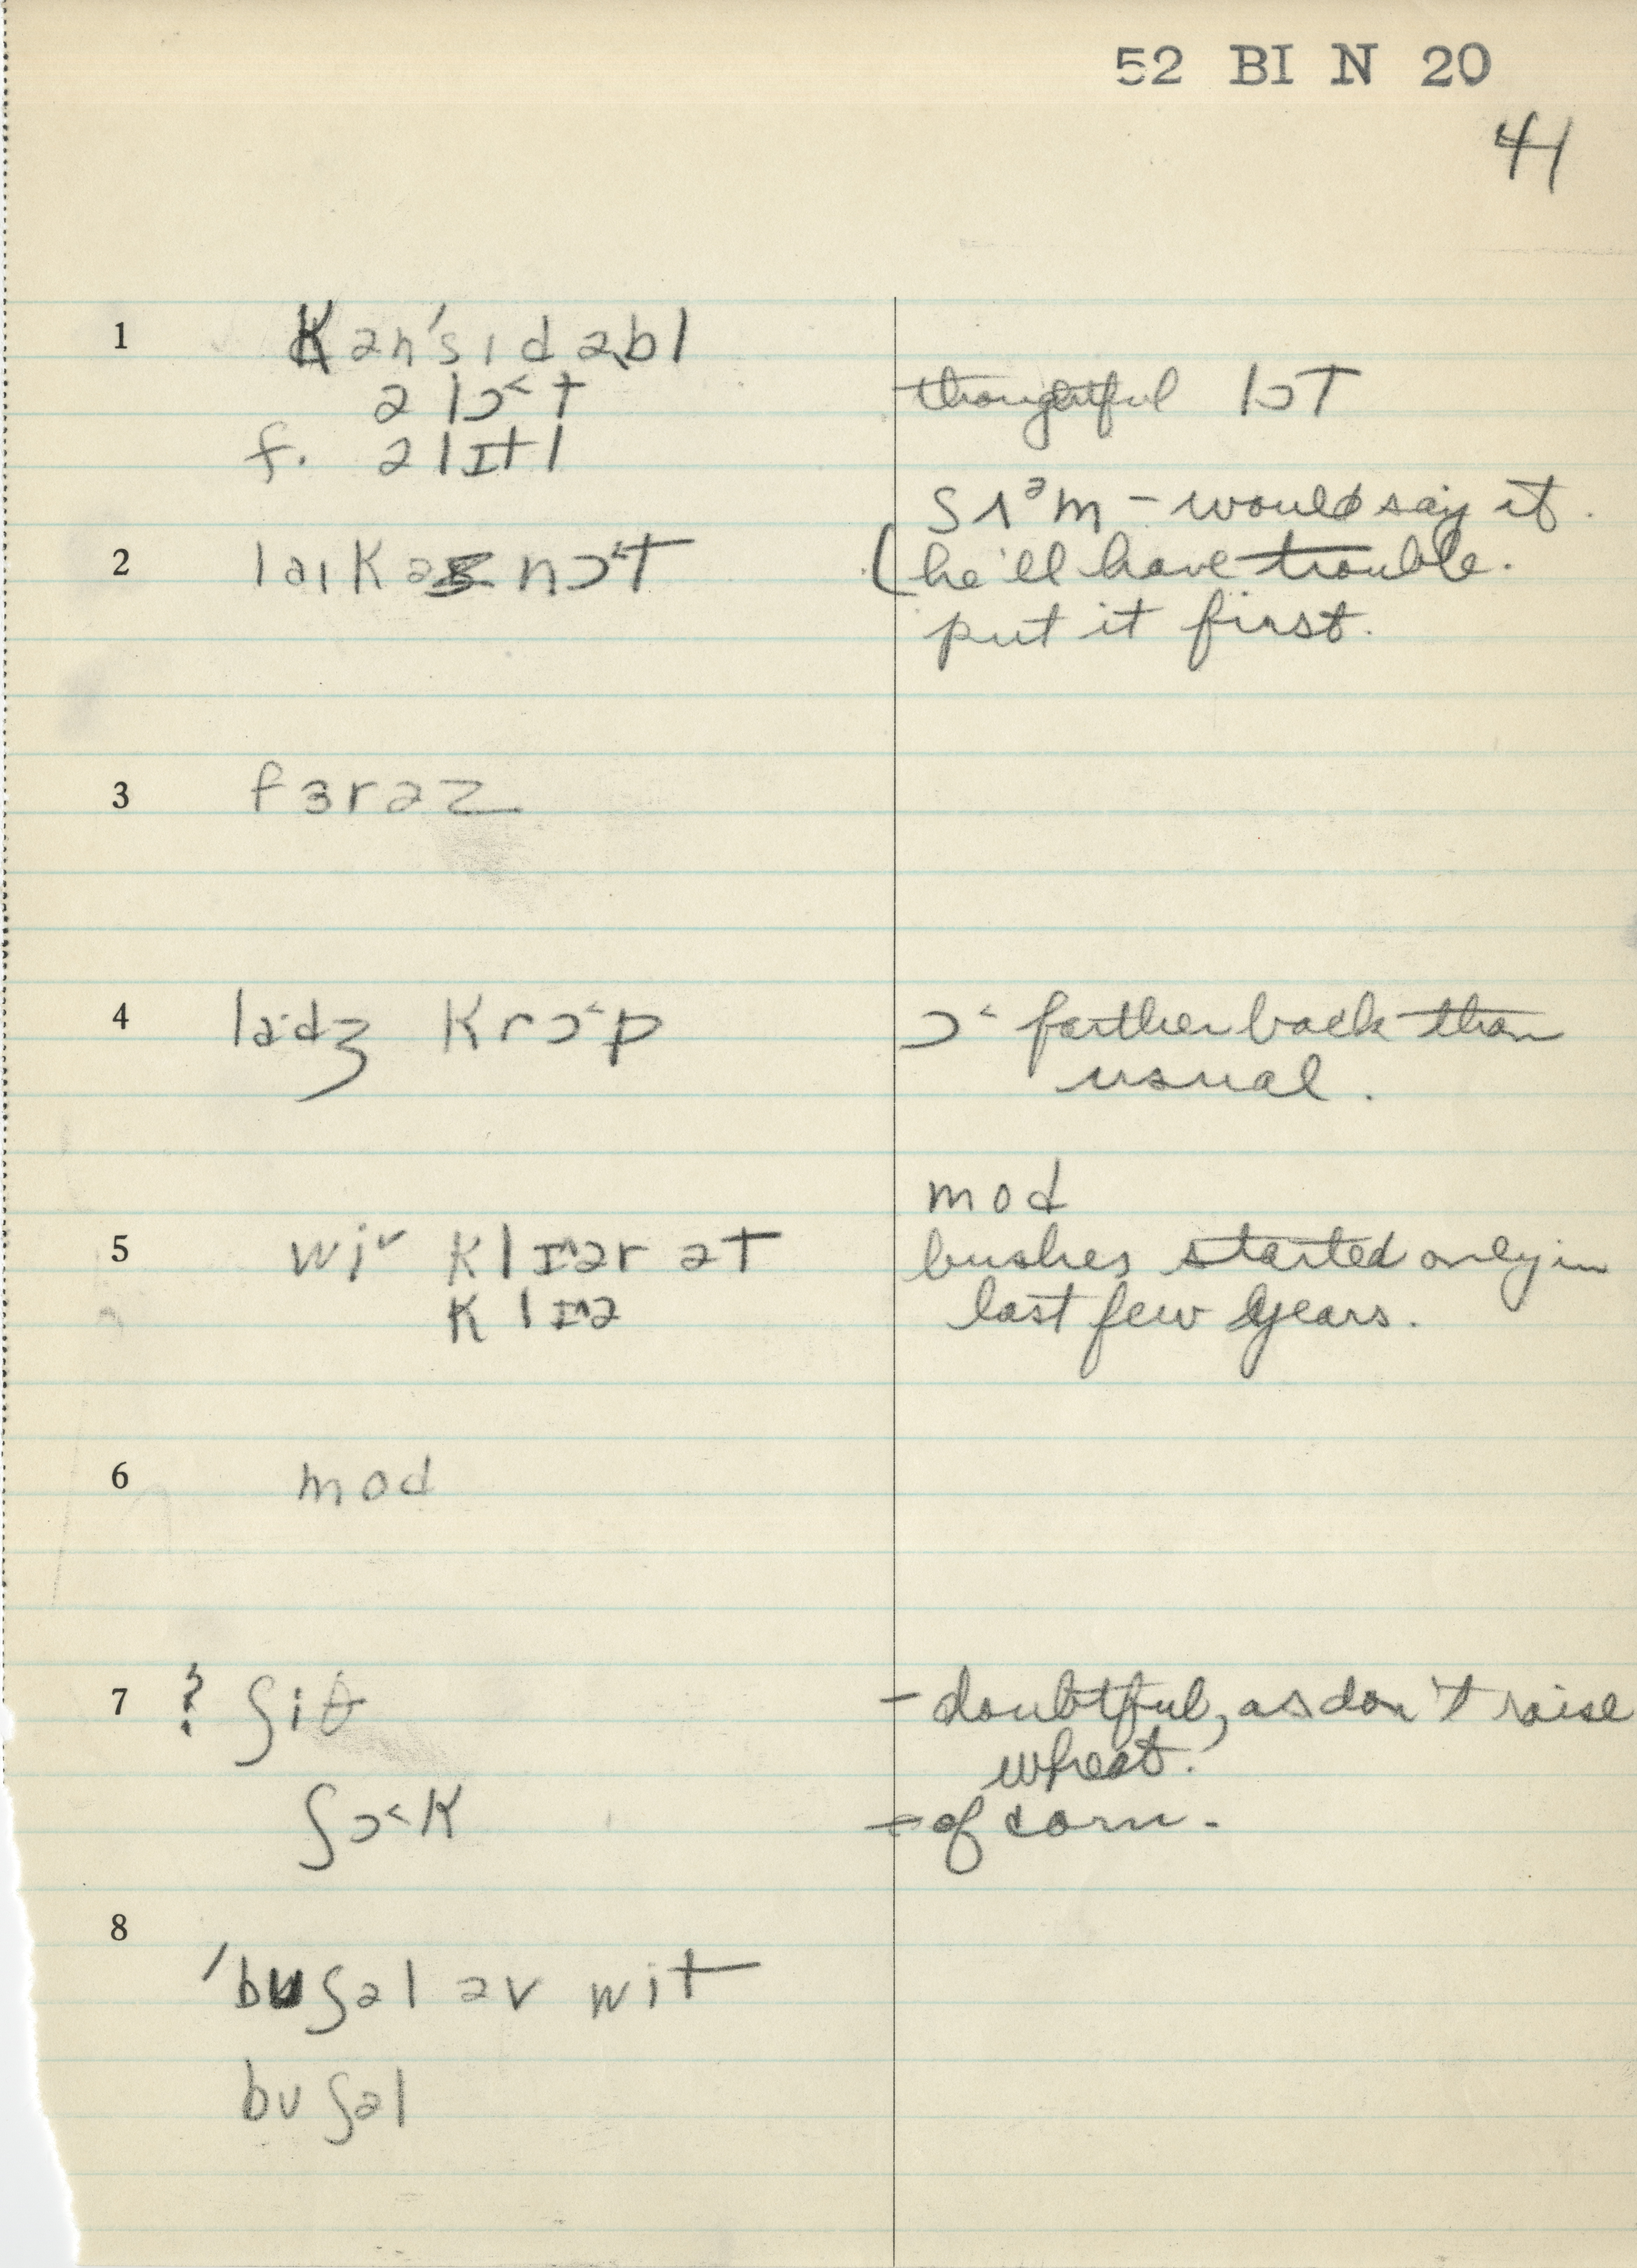 52 BI N 20
41
1 kən'sɪdəbl
ə lɔ˂t thoughtful lɔt
f. ə lɪtl
sʌᵊm - would say it.
2 laɪkəz nɔ˂t (he'll have trouble.
put it first.
3 fɜrəz
4 la·dʒ krɔ˂p ɔ˂ farther back than
usual.
mod
5 wiv klɪ^ər ət bushes started only in
klɪ^ə last few years.
6 mod
7 ? ʃiθ - doubtful, as don't raise
wheat.
ʃɔ˂k - of corn.
8
'bʊʃəl əv wit
bʊʃəl